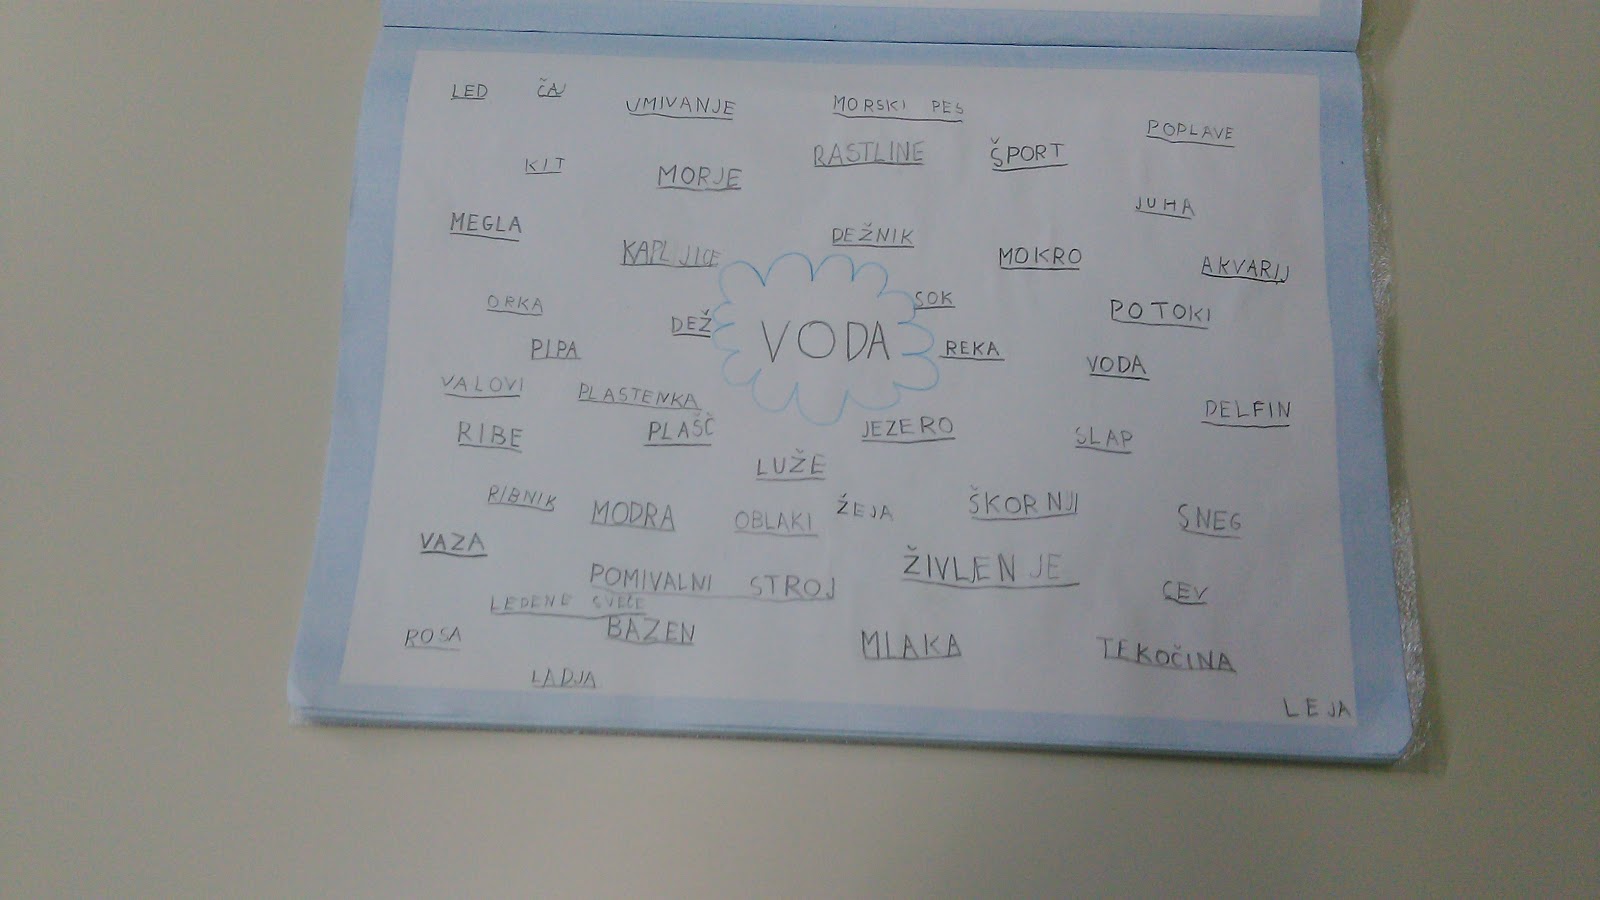 LED ČAJ UMIVANJE MORSKI PES
POPLAVE
KIT MORJE RASTLINE ŠPORT
JUHA
MEGLA KAPLJICE DEŽNIK MOKRO AKVARIJ
ORKA DEŽ SOK POTOKI
PIPA VODA REKA VODA
VALOVI PLASTENKA DELFIN
RIBE PLAŠČ JEZERO SLAP
LUŽE
RIBNIK MODRA OBLAKI ŽEJA ŠKORNJI SNEG
VAZA
POMIVALNI STROJ ŽIVLJENJE CEV
LEDENE SVEČE
ROSA BAZEN MLAKA TEKOČINA
LADJA
LEJA